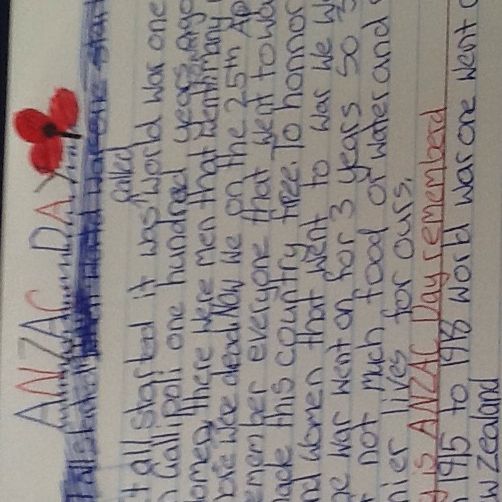 ANZAC DAY
called
t all started it was world war one
n Gallipoli one hundred years ago
women, there were men that went many
more were dead. Now we on the 25th Ap
emember everyone that went to wa
made this country free. To honnor
nd women that went to war we w
he war went on for 3 years so 3
not much food or water and
hier lives for ours.
y is ANZAC Day rememberd
1915 to 1918 world war one went o
w zealand